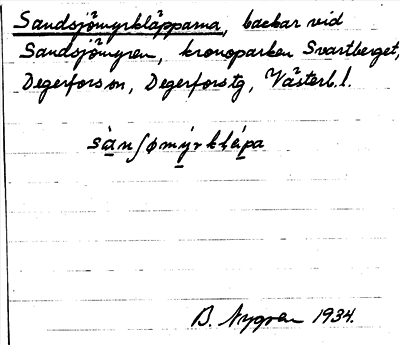 Sandsjömyrkläpparna, backar vid
Sandsjömyren, kronoparken Svartberget,
Degerfors sn, Degerfors tg, Västerb. l.
sànʃømýrklépa
B. Nygren 1934.